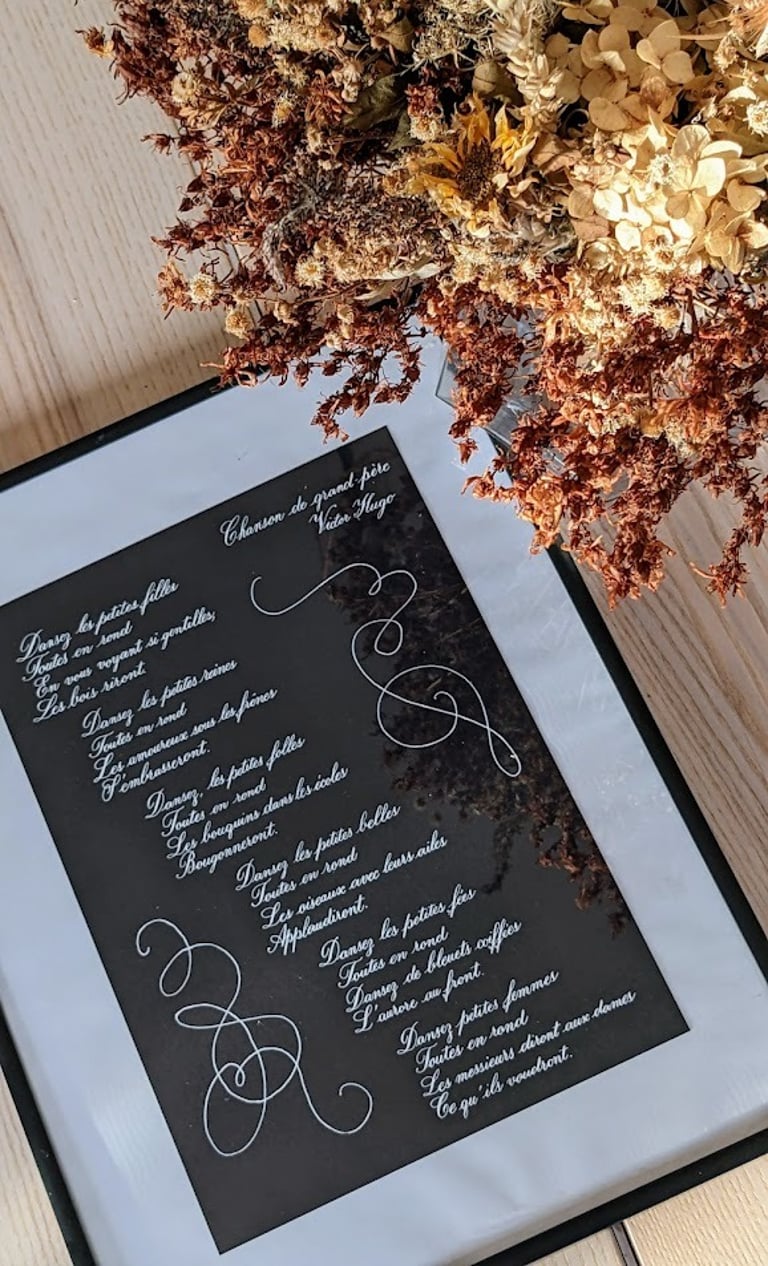 Chanson de grand-père
Victor Hugo
Dansez les petites filles
Toutes en rond
En vous voyant si gentilles,
Les bois riront.
Dansez les petites reines
Toutes en rond
Les amoureux sous les frênes
S'embrasseront.
Dansez, les petites folles
Toutes en rond
Les bouquins dans les écoles
Bougonneront.
Dansez les petites belles
Toutes en rond
Les oiseaux avec leurs ailes
Applaudiront.
Dansez les petites fées
Toutes en rond
Dansez de bleuets coiffées
L'aurore au front.
Dansez petites femmes
Toutes en rond
Les messieurs diront aux dames
Ce qu'ils voudront.